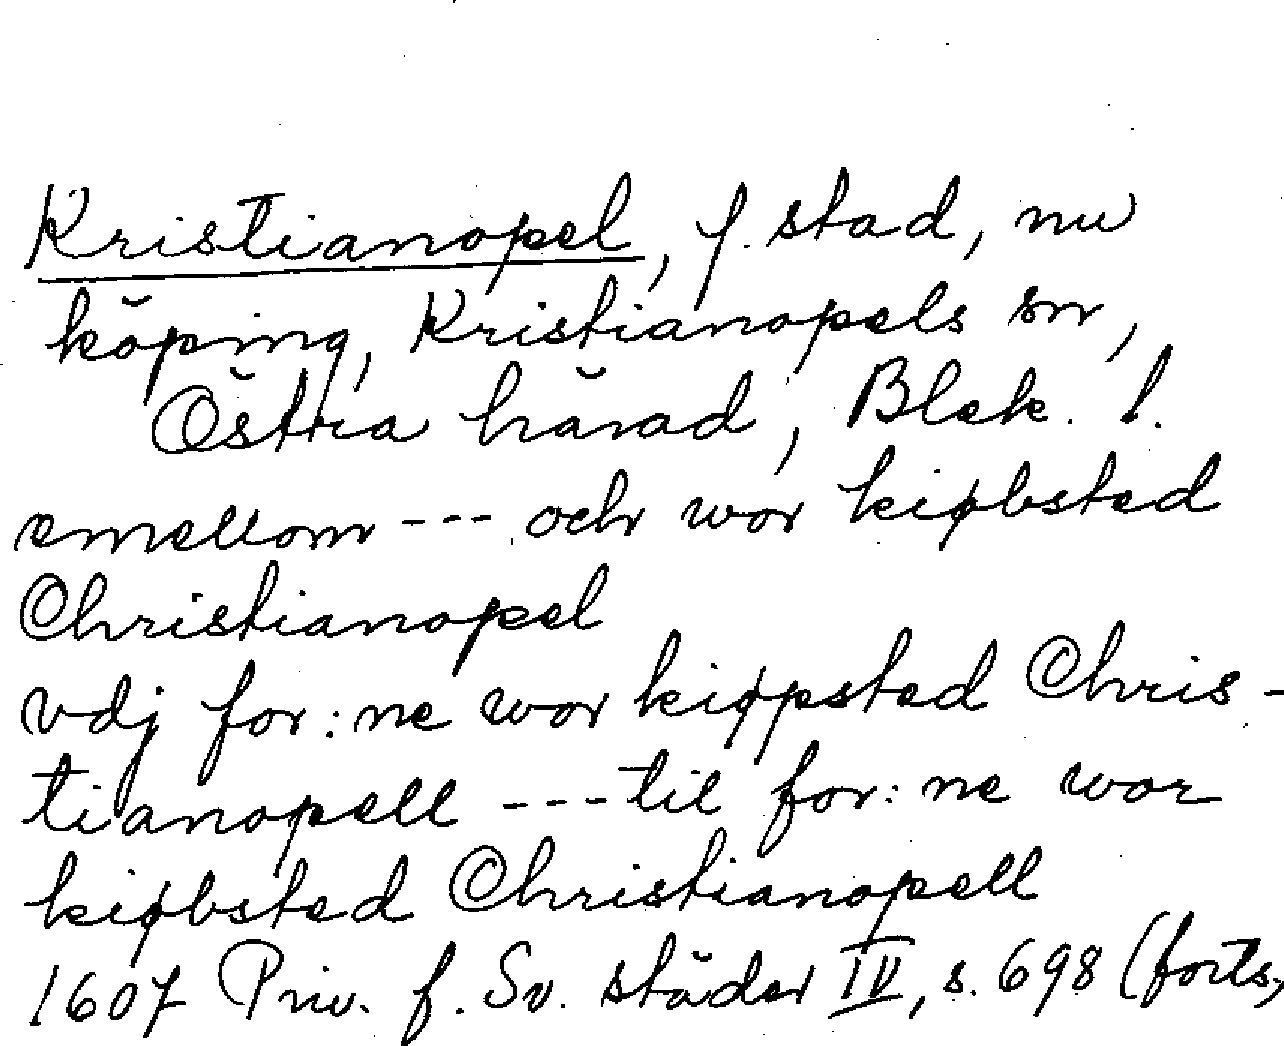 Kristianopel, f. stad, nu
köping, Kristianopels sn,
Östra härad, Blek. l.
emellom --- och wor kiøbsted
Christianopel
vdj for:ne wor kiøpsted Chris-
tianopell --- til for:ne wor
kiøbsted Christianopell
1607 Priv. f. Sv. städer IV, s. 698 (forts.)